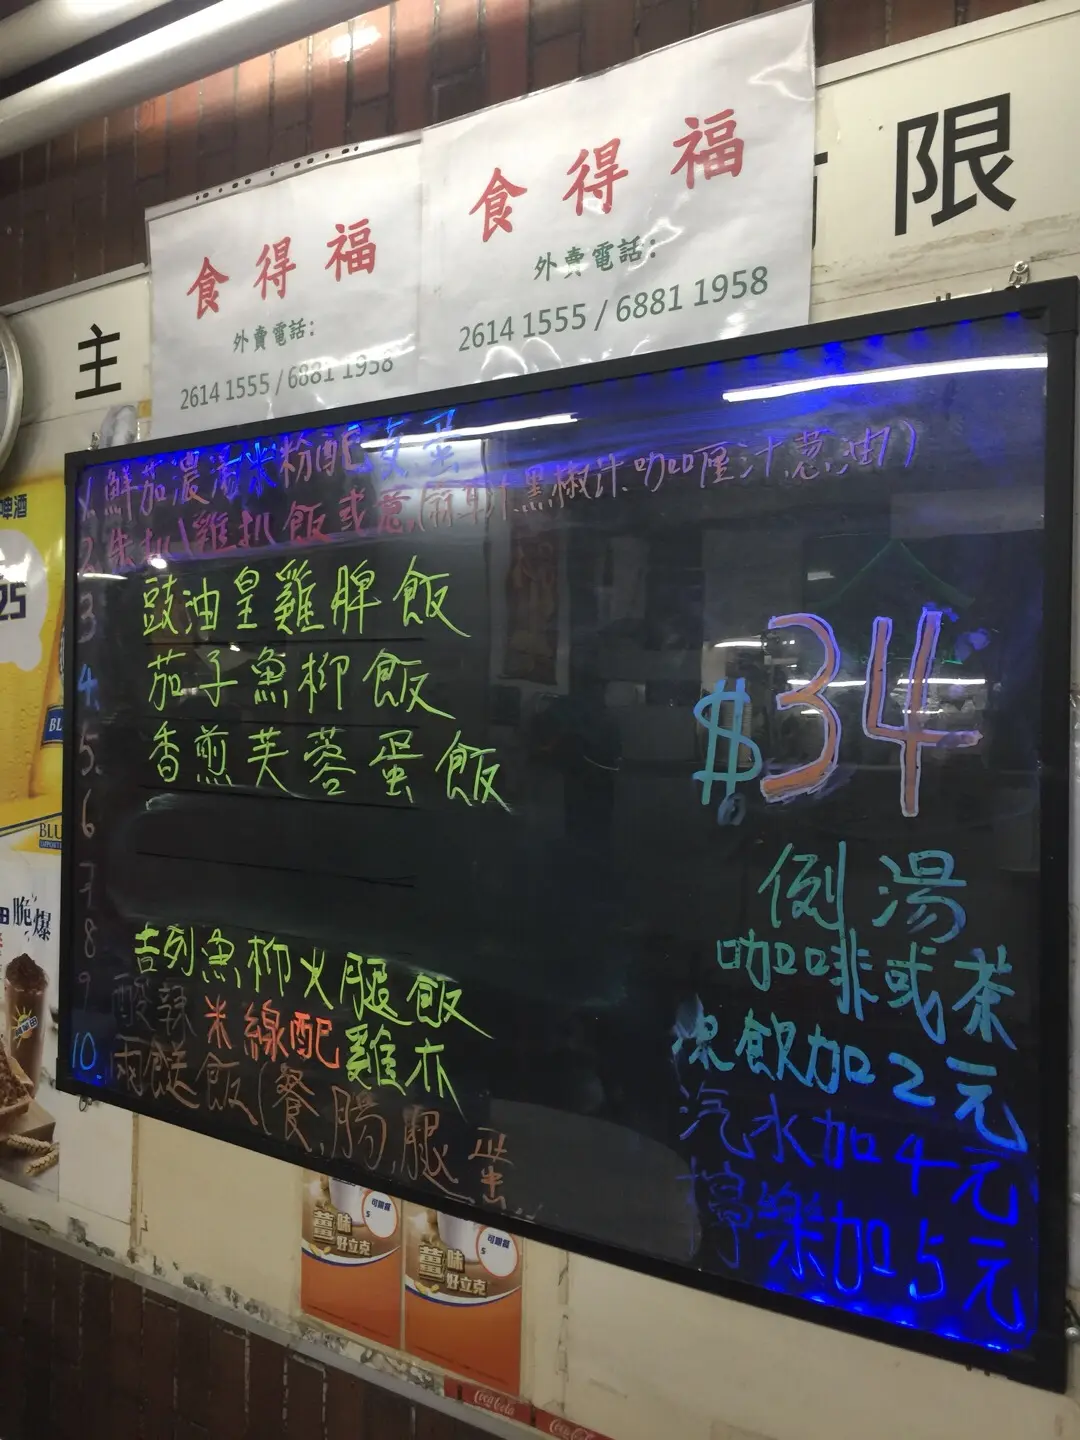 食得福
外賣電話：
2614 1555 / 6881 1958
食得福
外賣電話：
2614 1555 / 6881 1958
主
限
啤酒
25
1. 鮮茄濃湯米粉配煎蛋
2. 雞扒飯或意(黑椒汁咖喱汁蔥油)
3 豉油皇雞脾飯
4. 茄子魚柳飯
5. 香煎芙蓉蛋飯
6
7
8 吉列魚柳火腿飯
9 酸辣米線配雞
10. 兩餸飯(餐,腸,腿,蛋
$34
例湯
咖啡或茶
凍飲加2元
汽水加4元
檸樂加5元
BLU
脆爆
可跟餐
$
薑味
好立克
可跟餐
$
薑味
好立克
Coca-Cola
Coca-Cola